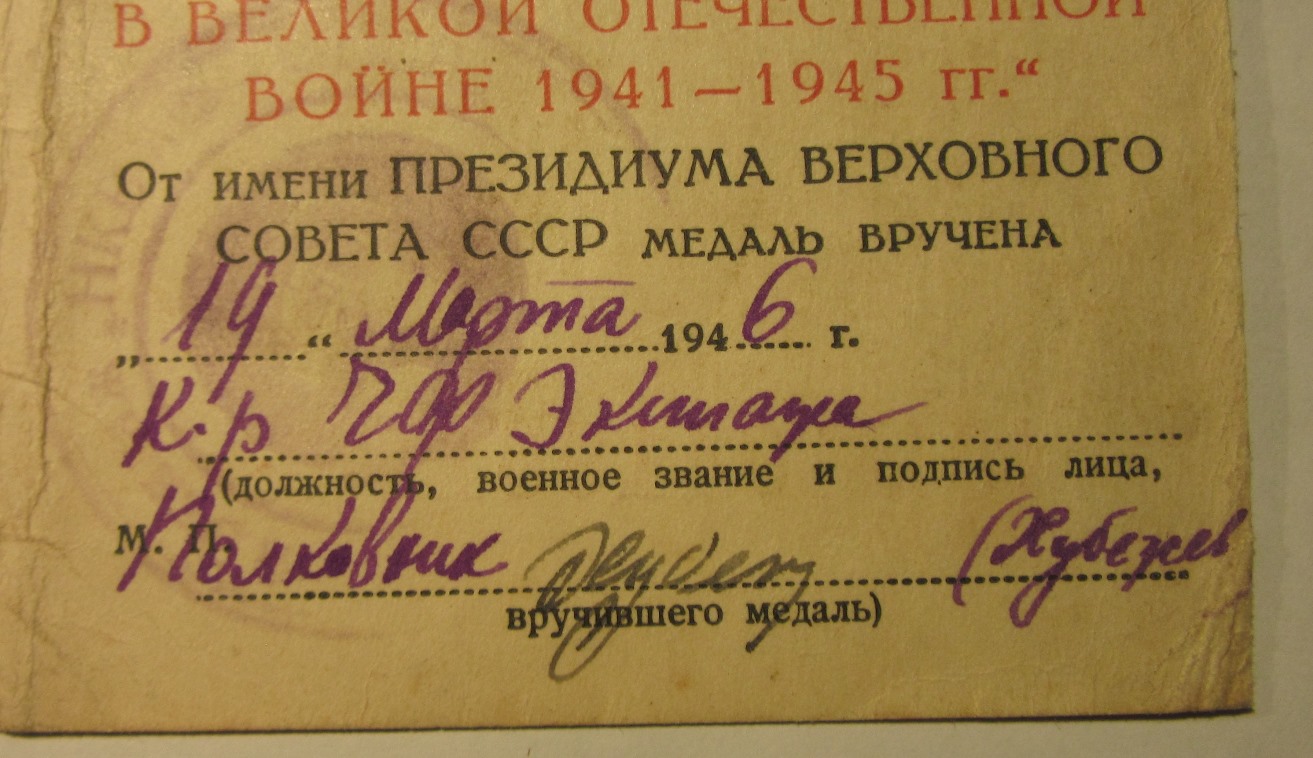 В ВЕЛИКОЙ ОТЕЧЕСТВЕННОЙ
ВОЙНЕ 1941—1945 гг.“
От имени ПРЕЗИДИУМА ВЕРХОВНОГО
СОВЕТА СССР МЕДАЛЬ ВРУЧЕНА
„19“ Марта 1946 г.
К-р ЧФ Экипажа
(должность, военное звание и подпись лица,
М. П. Полковник (Хубежев
вручившего медаль)